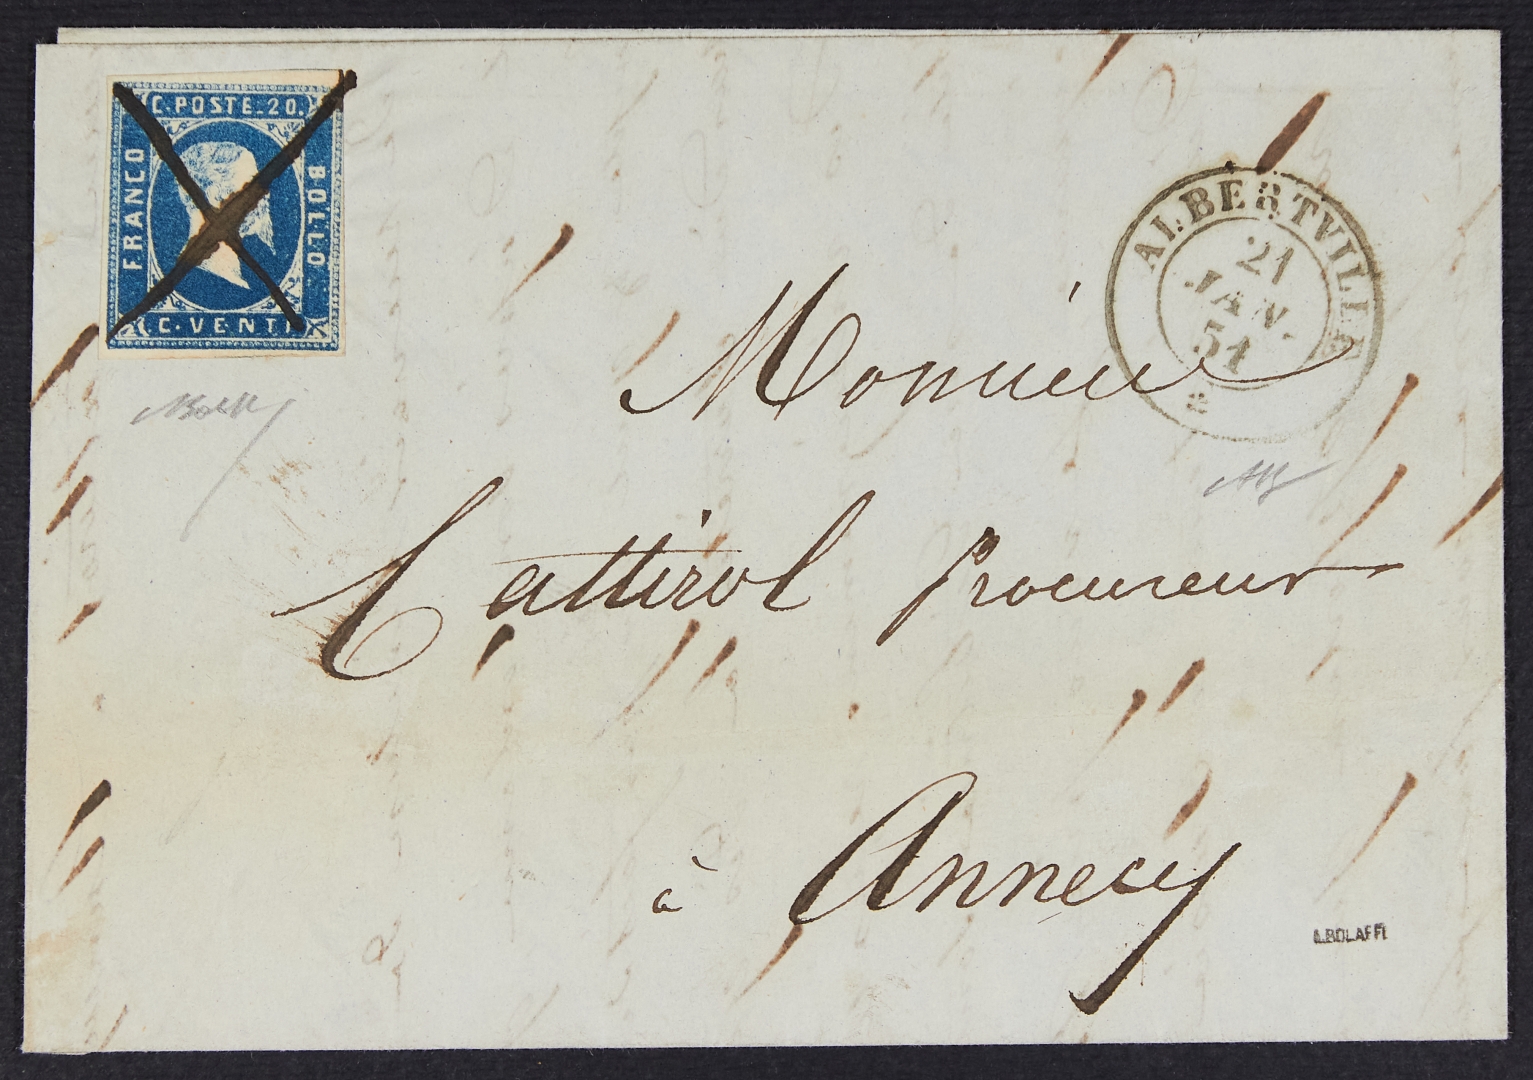 C. POSTE. 20.
FRANCO
BOLLO
C. VENTI
ALBERTVILLE
21
JAN.
51
Monsieur
Cattirol procureur
à Annecy
A. BOLAFFI